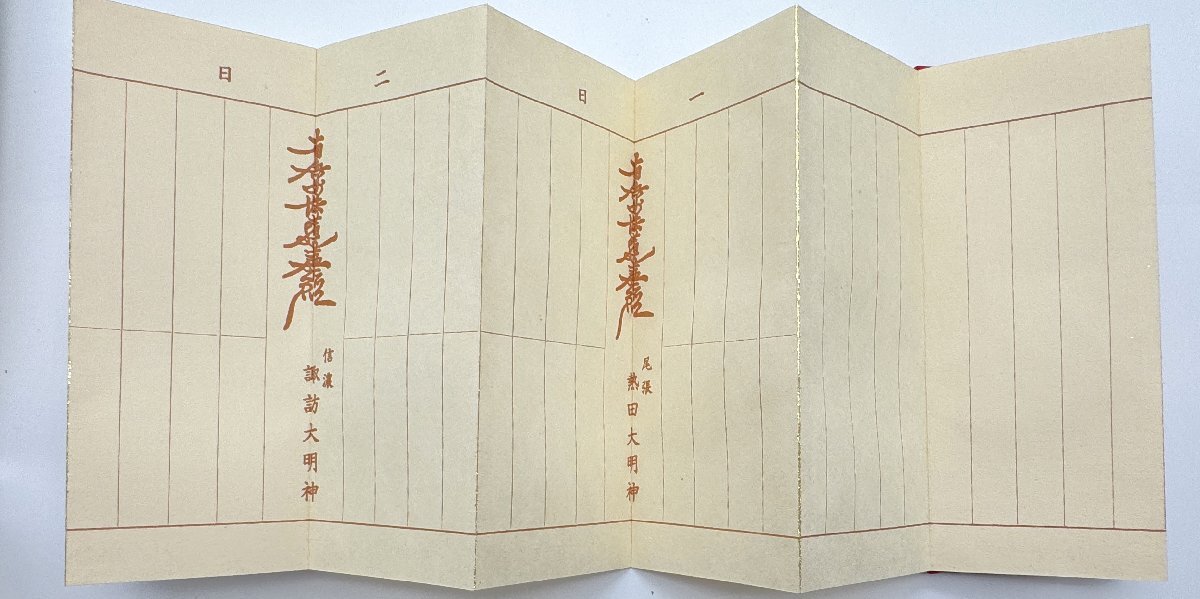 一日
南無妙法蓮華経
尾張
熱田大明神
二日
南無妙法蓮華経
信濃
諏訪大明神